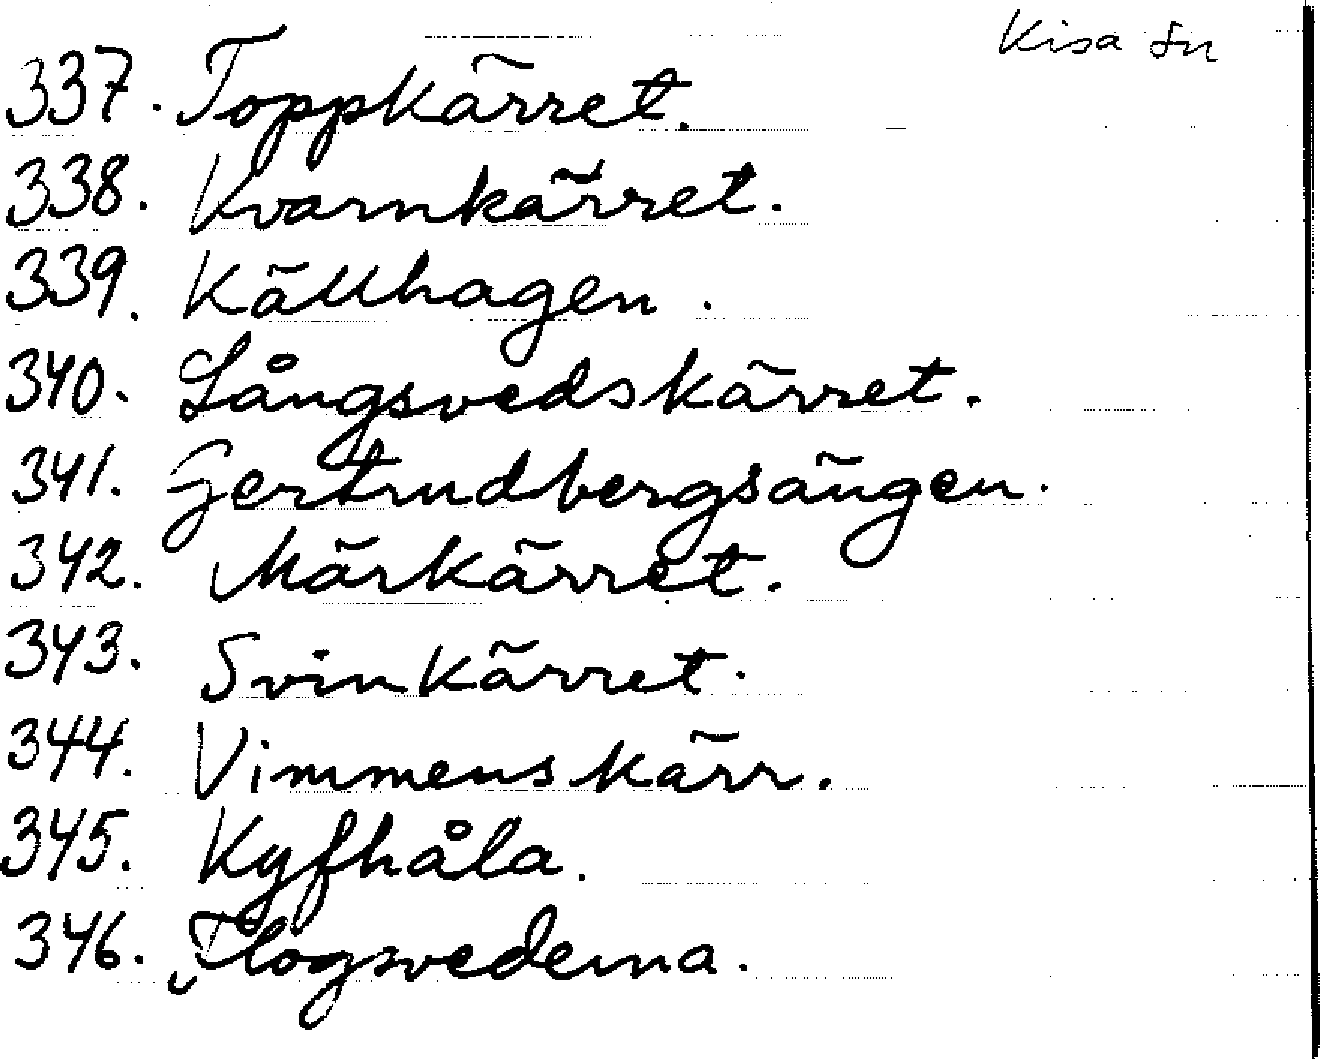 Kisa sn
337. Toppkärret.
338. Kvarnkärret.
339. Källhagen.
340. Långsvedskärret.
341. Gertrudbergsängen.
342. Märkärret.
343. Svinkärret.
344. Vimmenskärr.
345. Kyfhåla.
346. Flogsvederna.